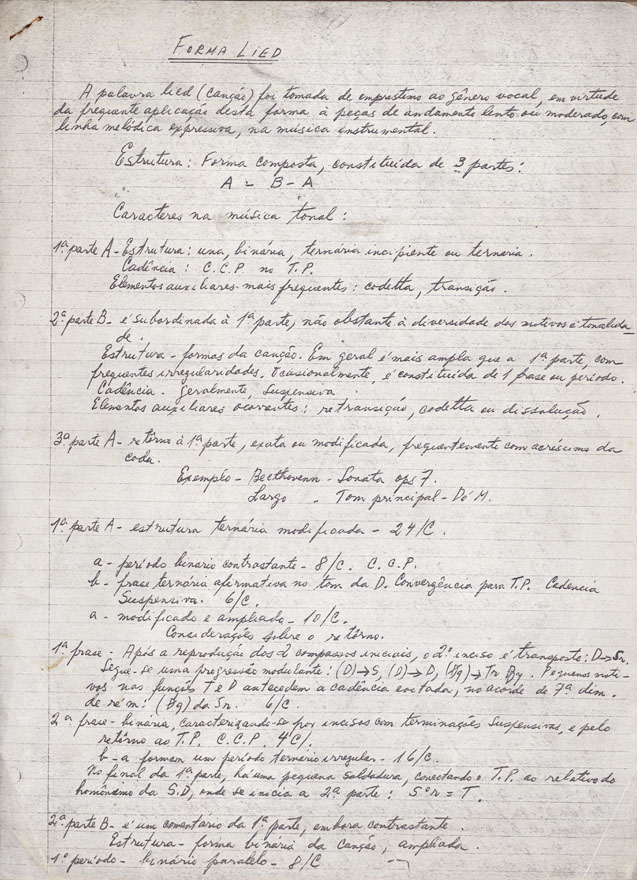 FORMA LIED
A palavra lied (canção) foi tomada de emprestimo ao gênero vocal, em virtude
da frequente aplicação desta forma à peças de andamento lento ou moderado, com
linha melódica expressiva, na música instrumental.
Estrutura: Forma composta, constituída de 3 partes:
A - B - A
Caracteres na música tonal:
1ª parte A - Estrutura: una, binária, ternária incipiente ou ternaria.
Cadência: C.C.P. no T.P.
Elementos auxiliares mais frequentes: codetta, transição.
2ª parte B - é subordinada à 1ª parte, não obstante à diversidade dos motivos e tonalida
de.
Estrutura - formas da canção. Em geral é mais ampla que a 1ª parte, com
frequentes irregularidades. Ocasionalmente, é constituída de 1 frase ou período.
Cadência - Geralmente, suspensiva
Elementos auxiliares ocorrentes: retransição, codetta ou dissolução.
3ª parte A - retôrno à 1ª parte, exata ou modificada, frequentemente com acréscimo da
coda.
Exemplo - Beethovenn - Sonata op. 7.
Largo - Tom principal - Dó M.
1ª parte A - estrutura ternária modificada - 24/C.
a - período binario contrastante - 8/C. C.C.P.
b - frase ternária afirmativa no tom da D. Convergência para T.P. Cadencia
Suspensiva. 6/C.
a - modificado e ampliado - 10/C.
Considerações sobre o retôrno.
1ª frase - Após a reprodução dos 2 compassos iniciais, o 2º inciso é transposto: D→Sr.
Segue-se uma progressão modulante: (D)→S, (D)→D, →Tr Pequenos moti-
vos nas funções T e D antecedem a cadência evitada, no acorde de 7ª dim.
de ré m: (B9) da Sr. 6/C
2ª frase - binária, caracterizando-se por incisos com terminações Suspensivas, e pelo
retôrno ao T.P. C.C.P. 4C/.
b-a formam um período ternario irregular - 16/C.
No final da 1ª parte, há uma pequena soldadura, conectando o T.P. ao relativo do
homônimo da S.D, onde se inicia a 2ª parte: Sºr = T.
2ª parte B - é um comentario da 1ª parte, embora contrastante.
Estrutura - forma binaria da canção, ampliada.
1º período - binário paralelo - 8/C